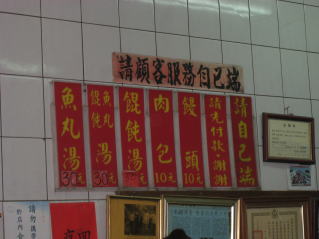 請顧客服務自己端
請自己端
請先付款．謝謝
饅頭
10元
肉包
10元
餛飩湯
30元
餛飩魚丸湯
30元
魚丸湯
30元
請勿